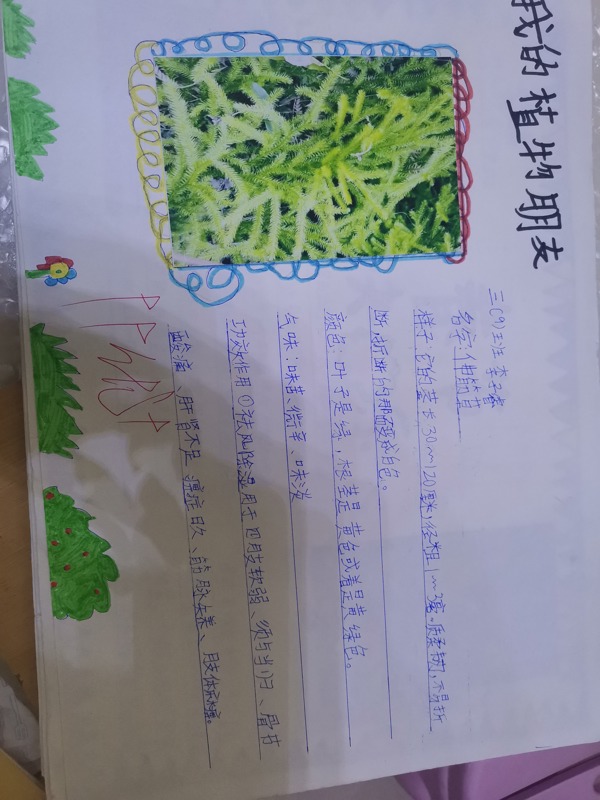 我的植物朋友
三(9)班 李子睿
名字:伸筋草
样子:它的茎长30m120厘,径粗1m3毫。质柔韧,不易折
断,折断的那面变成白色。
颜色:叶子是绿,根茎是黄色或着是黄绿色。
气味:味苦、微辛、味淡
功效作用①祛风除湿用于四肢软弱、须与当归、骨节
酸痛、肝肾不足 日久、筋脉、肢体